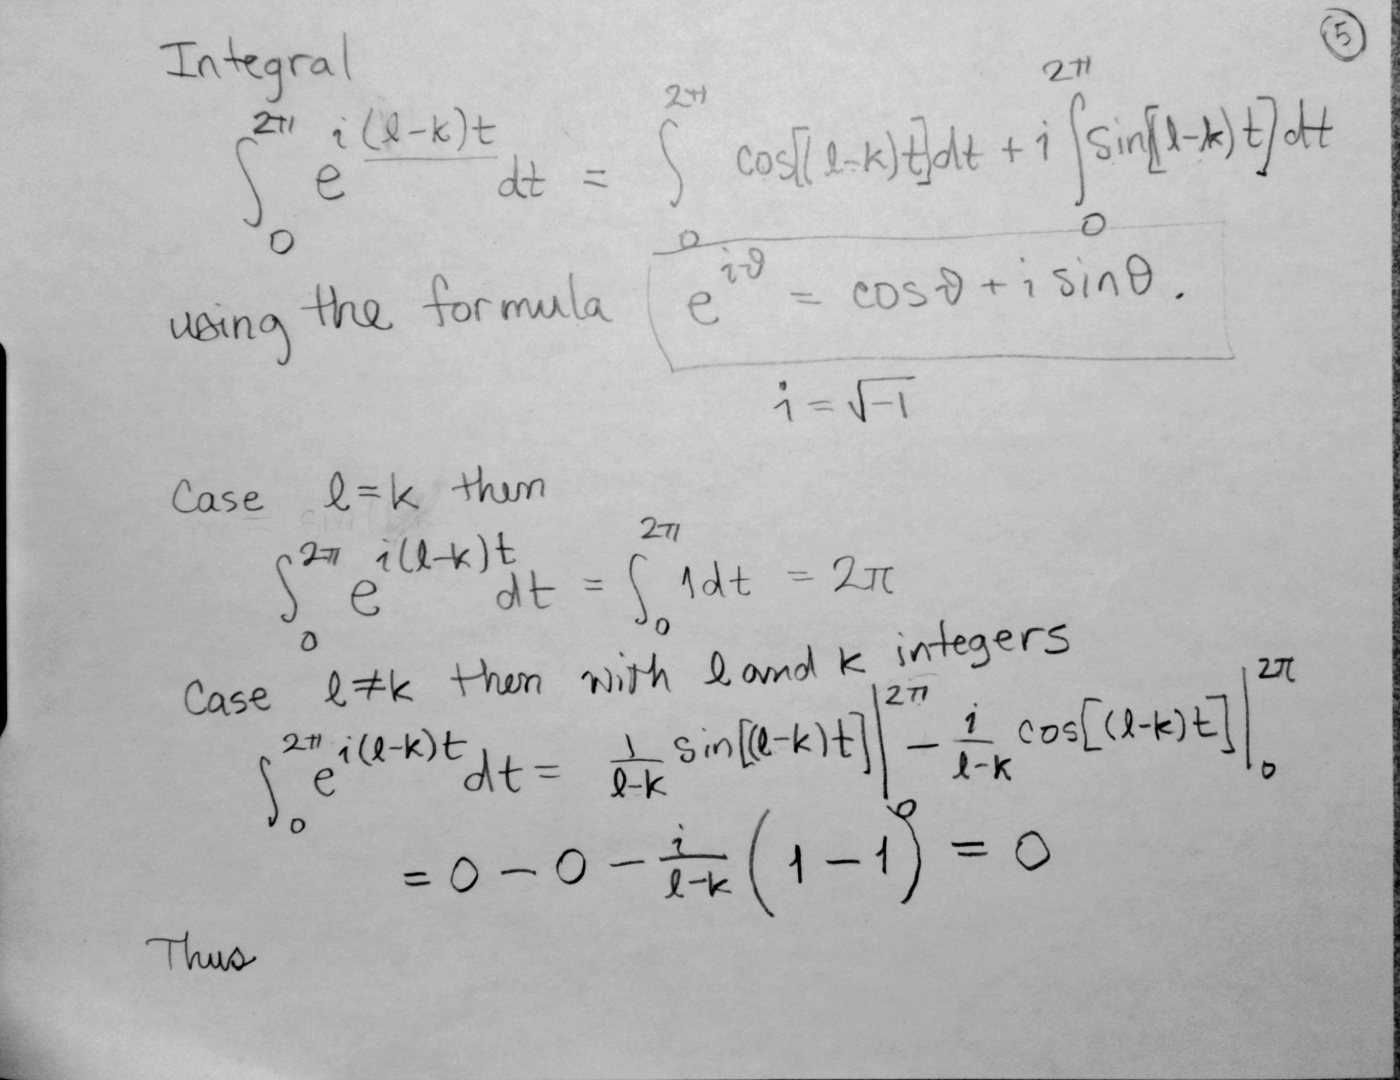 5
Integral
∫₀^{2π} e^{i(l-k)t} dt = ∫₀^{2π} cos[(l-k)t]dt + i ∫₀^{2π} sin[(l-k)t]dt
using the formula e^{iθ} = cosθ + i sinθ.
i = √-1
Case l=k then
∫₀^{2π} e^{i(l-k)t} dt = ∫₀^{2π} 1dt = 2π
Case l≠k then with l and k integers
∫₀^{2π} e^{i(l-k)t} dt = 1/(l-k) sin[(l-k)t]|₀^{2π} - i/(l-k) cos[(l-k)t]|₀^{2π}
= 0 - 0 - i/(l-k) (1-1) = 0
Thus